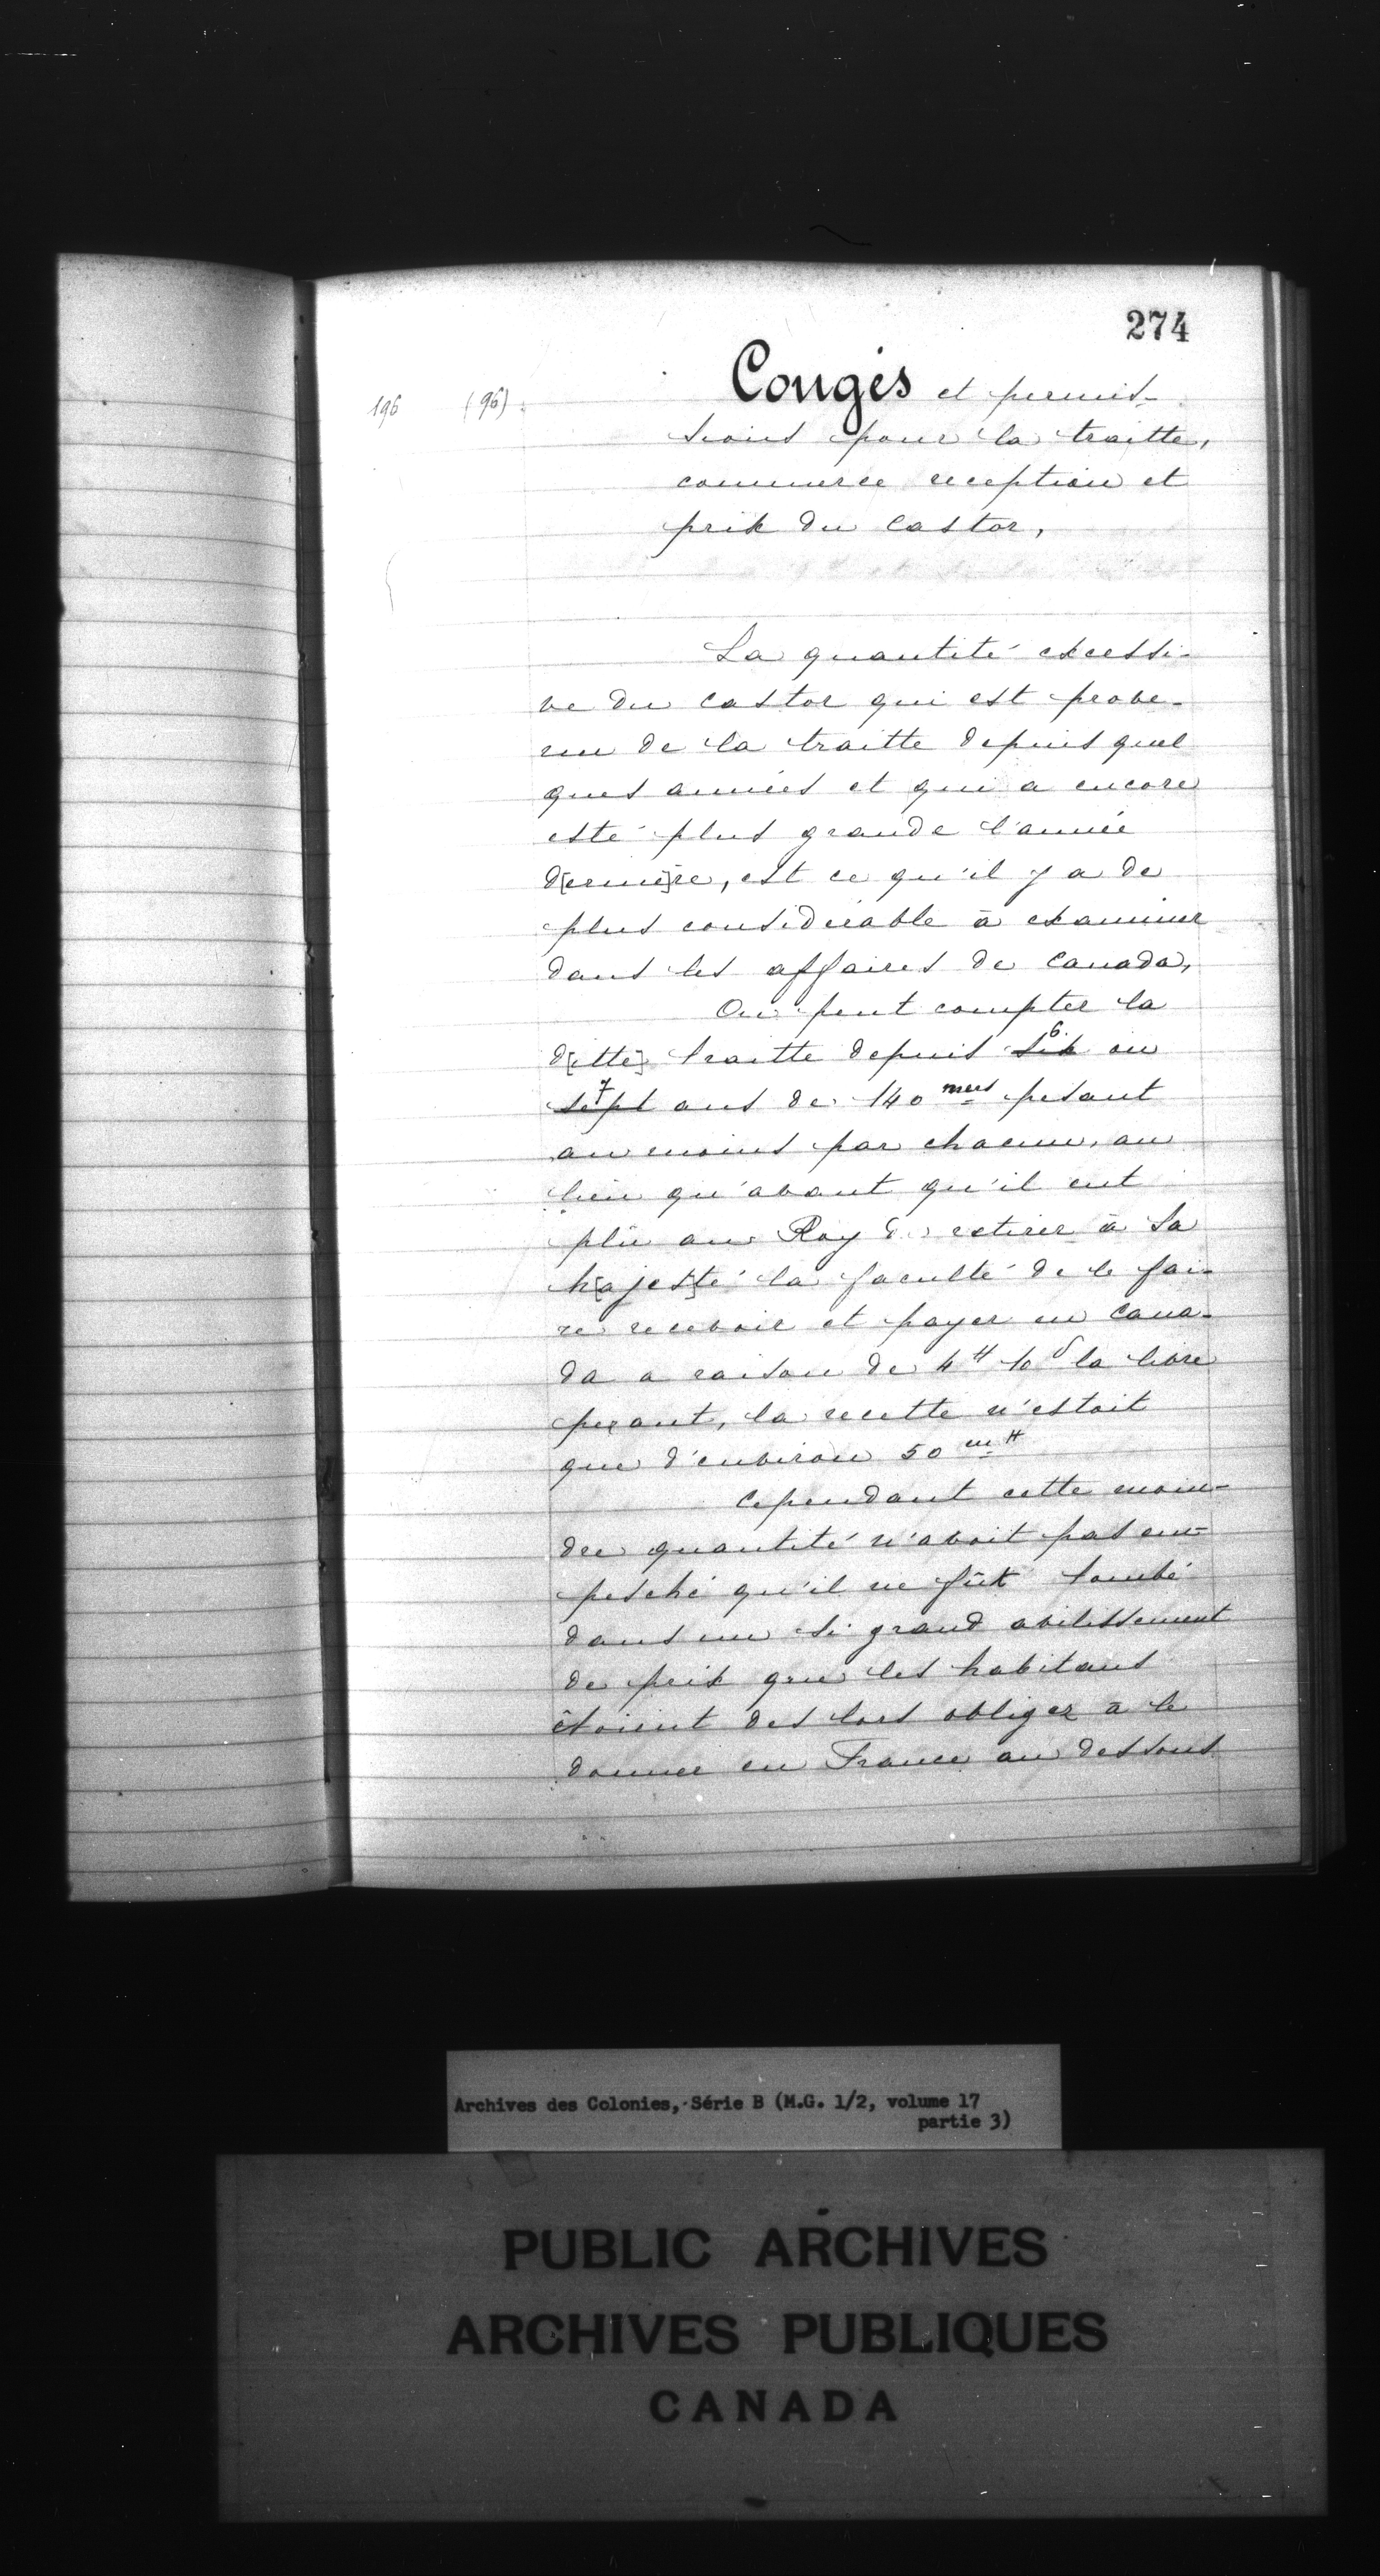 274
196 (96)
Congés et permis-
sions pour la traitte,
commerce reception et
prix du Castor,
La quantité excessi-
ve du Castor qui est prove-
nu de la traitte depuis quel
ques années et qui a encore
esté plus grande l'année
d[erniè]re, est ce qu'il y a de
plus considérable à examiner
dans les affaires de Canada,
On peut compter la
d[itte] traitte depuis six 6. ou
sept 7 ans de 140 mers pesant
au moins par chacun, au
lieu qu'avant qu'il eut
plû au Roy de retirer à Sa
M[ajes]té la faculté de le fai-
re recevoir et payer en Cana-
da a raison de 4 ₶ 10 s la livre
pezant, la recette n'estoit
que d'environ 50 m ₶
Cependant cette moin-
dre quantité n'avoit pas em-
pesché qu'il ne fût tombé
dans un si grand avilissement
de prix que les habitans
étoient des lors obligez à le
donner en France au dessous
Archives des Colonies, Série B (M.G. 1/2, volume 17
partie 3)
PUBLIC ARCHIVES
ARCHIVES PUBLIQUES
CANADA